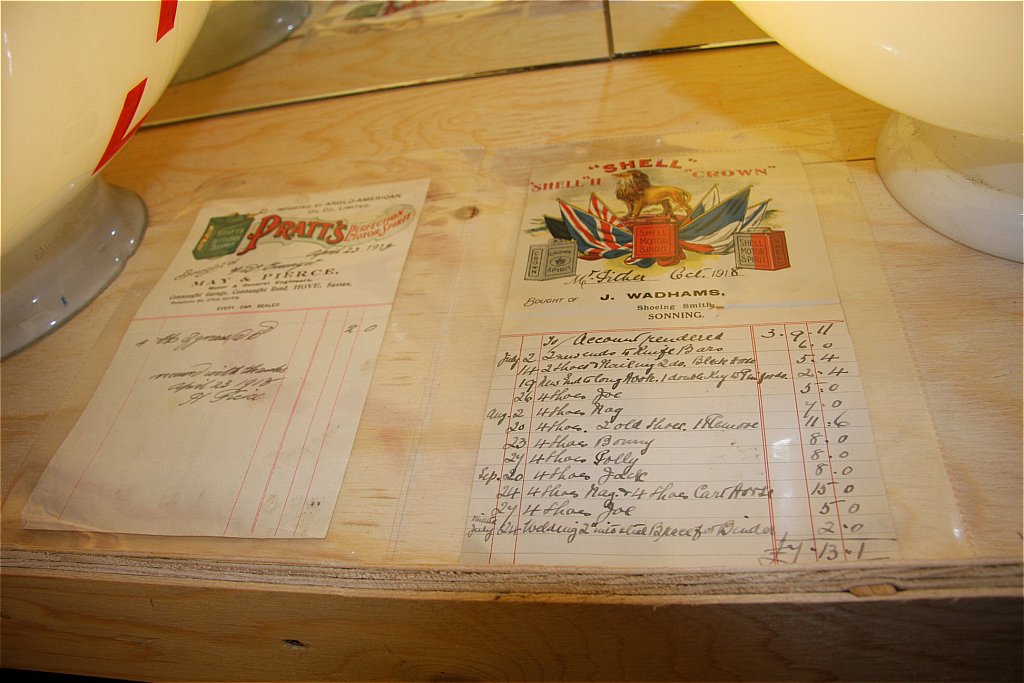 IMPORTED BY ANGLO-AMERICAN
OIL CO., LIMITED.
PRATT'S
PERFECTION
MOTOR SPIRIT
April 23 1914
Bought of
MAY & PIERCE,
Motor & General Engineers,
Connaught Garage, Connaught Road, HOVE, Sussex.
EVERY CAN SEALED
2 0
received with thanks
"SHELL"
"SHELL" II
"CROWN"
SHELL
MOTOR
SPIRIT
CROWN
SPIRIT
SHELL
MOTOR
SPIRIT
Mr. Fisher Oct. 1918
BOUGHT OF J. WADHAMS,
Shoeing Smith,
SONNING.
To Account rendered 3 . 9 . 11
July 2 2 new ends to Knife Bars 6 . 0
14 2 Shoes 5 . 4
19 New End to long Hook. 1 double Key 2 . 4
26 4 Shoes Joe 5 . 0
Aug. 2 4 Shoes Nag 7 . 0
20 4 Shoes. 2 old Shoes. 1 Remove 11 . 6
23 4 Shoes Bonny 8 . 0
27 4 Shoes Polly 8 . 0
Sep. 20 4 Shoes Jack 8 . 0
24 4 Shoes Nag. & 4 Shoes Cart Horse 15 . 0
27 4 Shoes Joe 5 0
July 24 Welding 2 Brace for Binder 2 . 0
£7 . 13 . 1